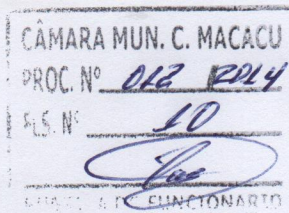 CÂMARA MUN. C. MACACU
PROC. Nº 012 2014
FLS. Nº 10
FUNCIONARIO